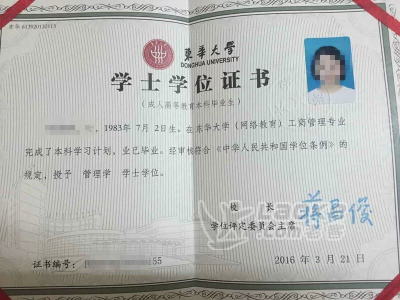 東華大學
DONGHUA UNIVERSITY
学士学位证书
(成人高等教育本科毕业生)
，1983年 7月 2日生。在东华大学（网络教育）工商管理专业
完成了本科学习计划，业已毕业。经审核符合《中华人民共和国学位条例》的
规定，授予 管理学 学士学位。
校 长
学位评定委员会主席
蒋昌俊
证书编号：
55
2016 年 3 月 21 日